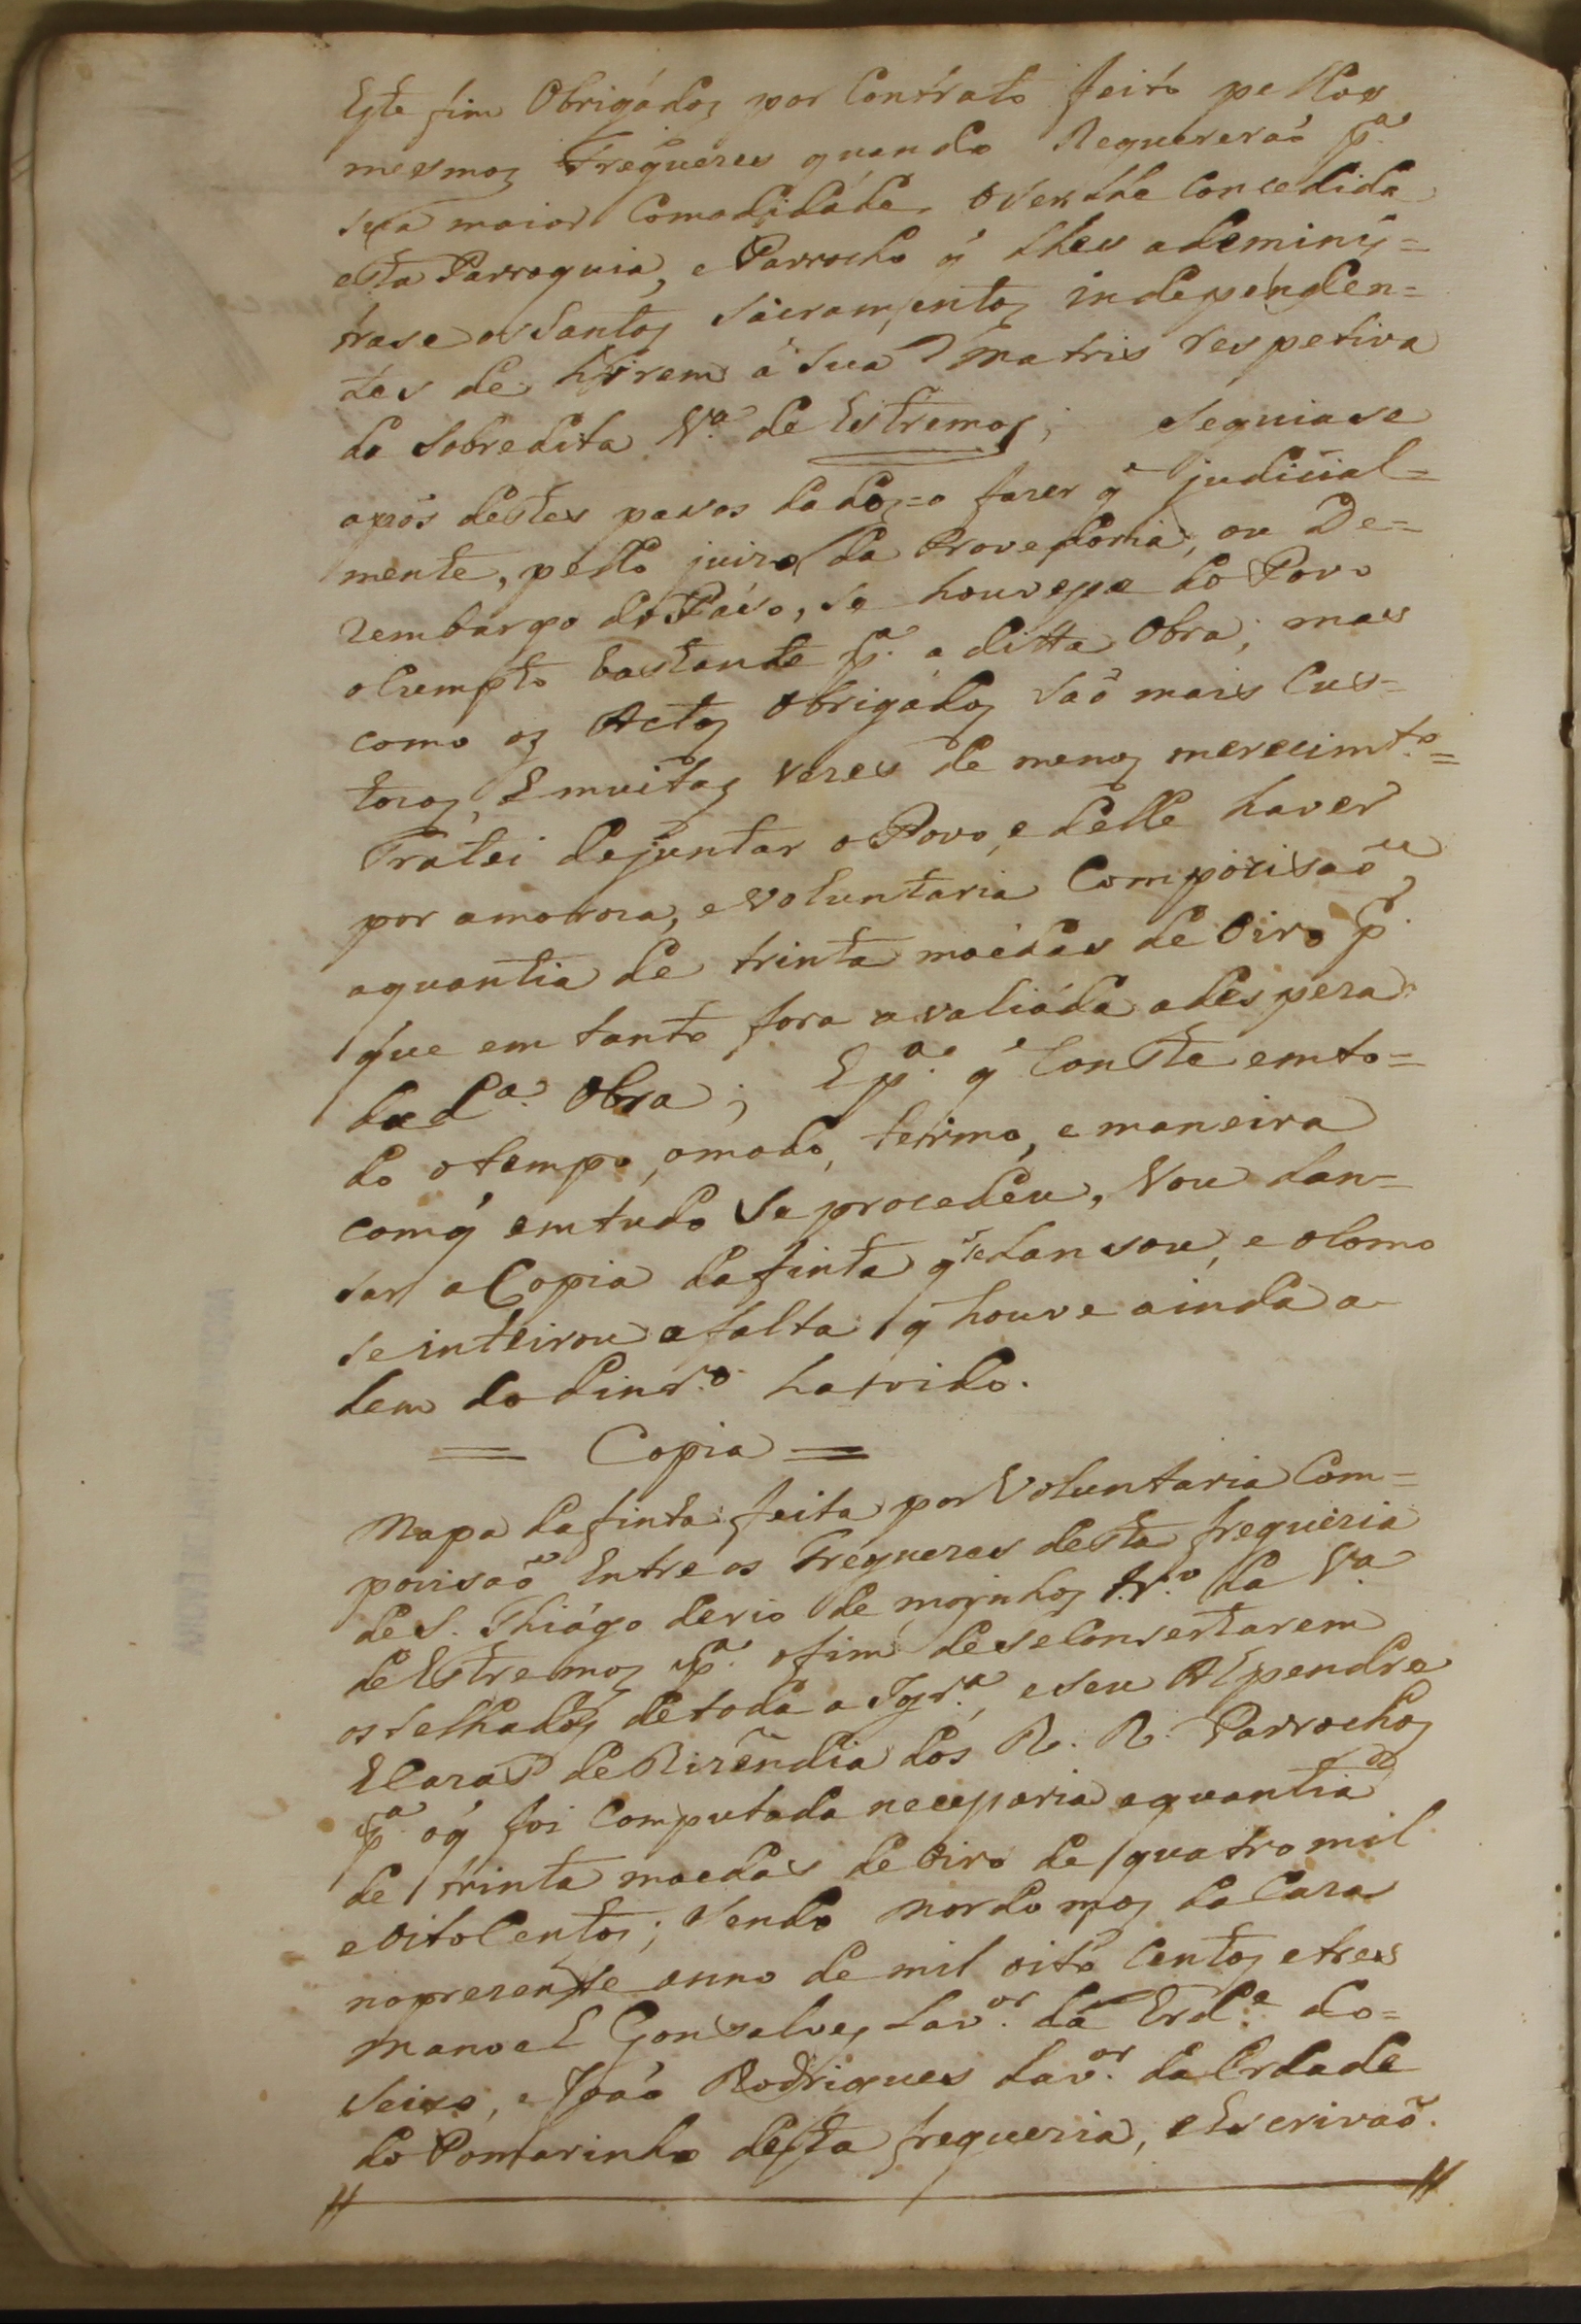 Este fim Obrigádos por Contrato feito pellos
mesmos Freguezes quando Requererão p.ª
sua maior Comodidáde, o ser lhe Concedida
esta Parroquia, e Parrocho q̃ lhesademinis=
trase os Santos Sacramentos independen=
tes de hirem á Sua Matris respetiva
da Sobredita V.ª de Estremos; Seguiase
após destes pasos dados=o fazer q̃ judicial=
mente, pello juizo da Provedoria, ou De=
zembargo do Páso, se houvese do Povo
o Cumpto bastante p.ª a ditta Obra; mas
como os Actos Obrigádos são mais Cus=
tozos, E muitas vezes de menos merecimt.º=
Tratei dejuntar o Povo, e delle haver
por amoroza, e voluntaria Compozisaõ
aquantia de trinta moédas de Oiro p.r
que em tanto fora avaliáda adespeza
da d.ª Obra; E p.ª q̃ Conste emto=
do otempo, omodo, termo, e maneira
comq̃ emtudo Se procedeu, Vou lan=
sar a Copia dafinta q̃ se lansou, e o Como
se inteirou a falta q̃ houve ainda a
lem do dinr.º havido.
= Copia =
Mapa dafinta feita por Voluntaria Com=
pozisaõ Entre os Freguezes desta freguezia
de S. Thiágo derio de moinhos tr.º da V.ª
de Estremos p.ª ofim deseConsertarem
os telhados detoda a Igr.ª, e seu Alpendre
E Cazas de Rizendia dos R. R. Parrochos
p.ª oq̃ foi Computada necesaria aquantia
de trinta moedas de Oiro de quatro mil
e Oito Centos; Sendo Mordomos da Caza
nopresente anno de mil oito Centos etres
Manoel Gonsalves Lav.or da Erd.e do=
Seixo, e João Rodrigues Lav.or da Erdade
do Pomarinho desta freguezia, e Escrivaõ.